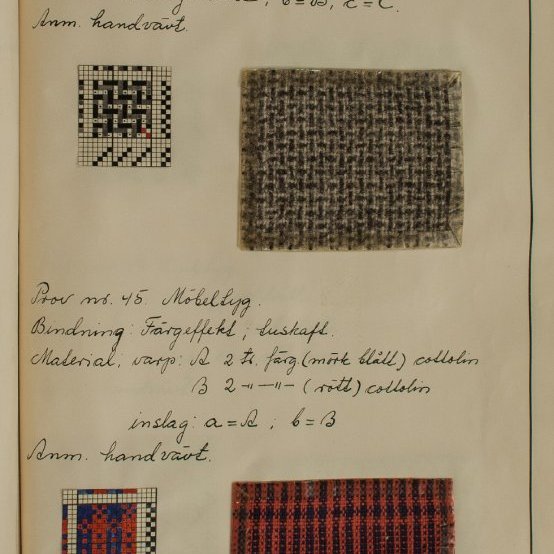 b = B, c = C.
Anm. handvävt.
Prov nr. 45. Möbeltyg.
Bindning: Färgeffekt; tuskaft.
Material, varp: A 2 tr. färg. (mörk blått) cottolin
B 2 -"- -"- (rött) cottolin
inslag: a = A ; b = B
Anm. handvävt.